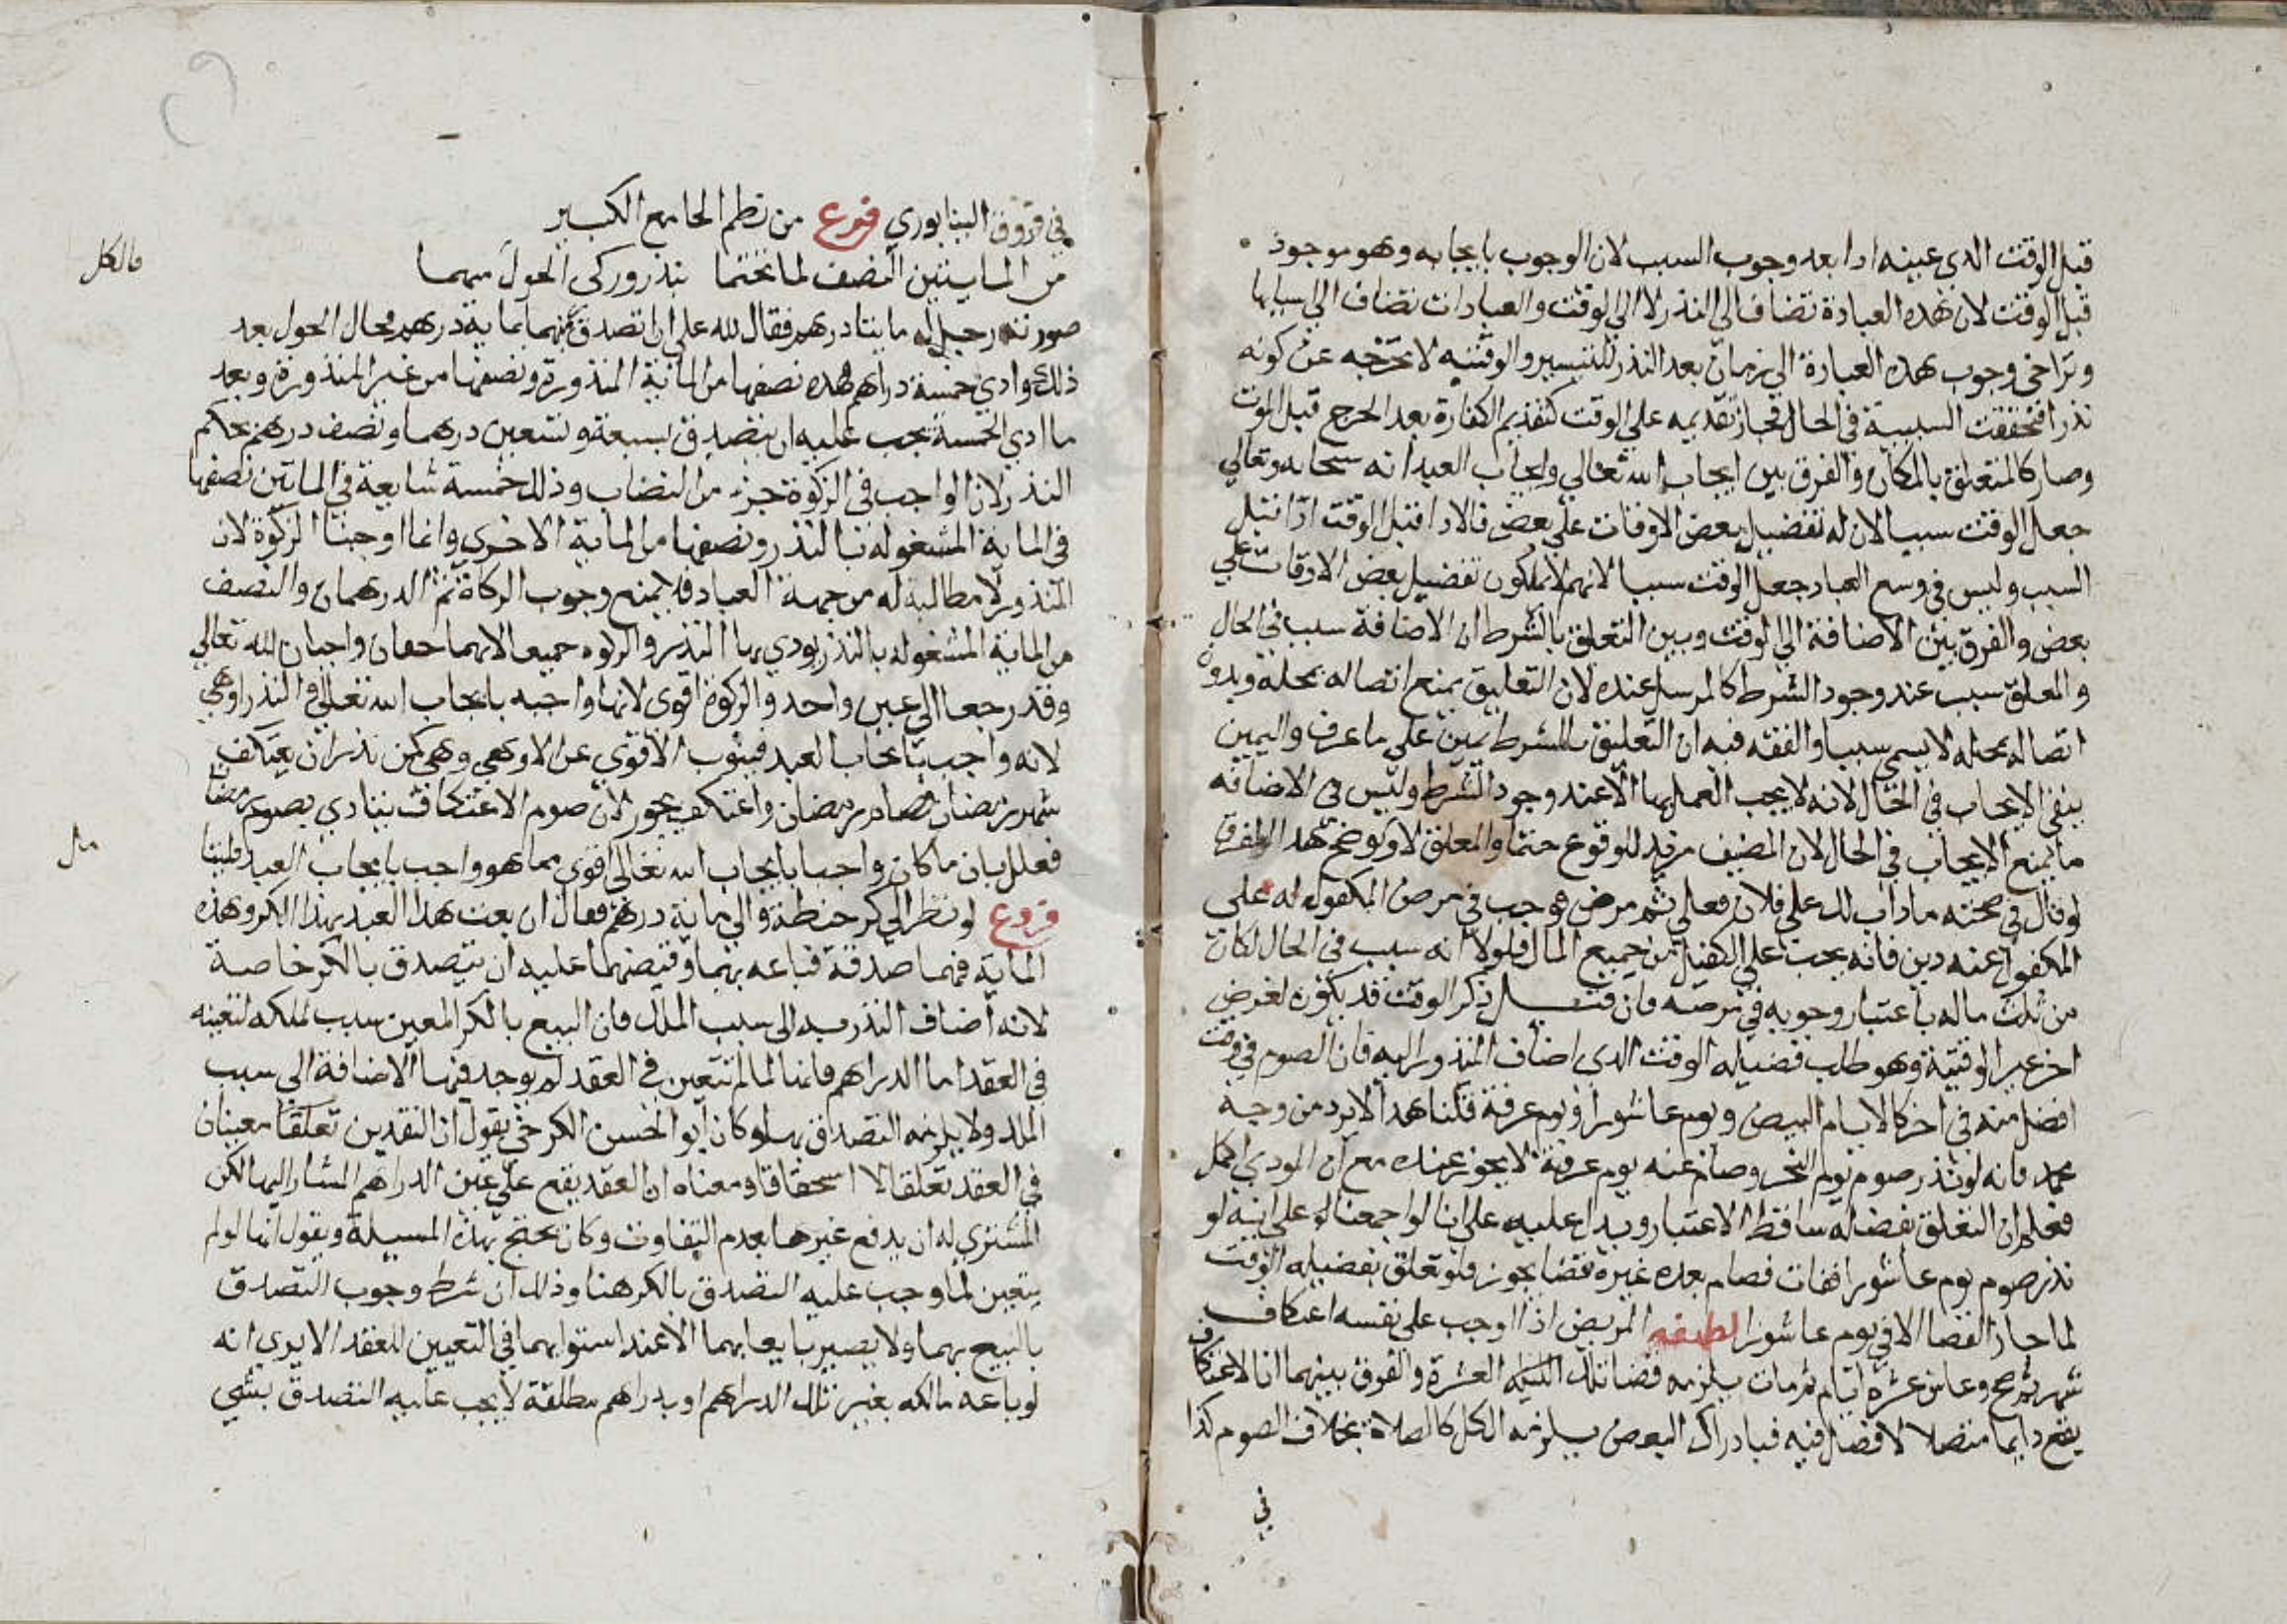 قبل الوقت الدي عينه ادا بعد وجوب السبب لان الوجوب بايجابه وهو موجود
قبل الوقت لان هده العبادة تضاف الي النذر لا الي الوقت والعبادات تضاف الي اسبابها
وتراخي وجوب هده العبادة الي زمان بعد النذر للتيسير والوقتيه لا تخرجه عن كونه
نذرا فتحققت السببية في الحال فجاز تقديمه علي الوقت كتقديم الكفارة بعد الجرح قبل الموت
وصار كالمتعلق بالمكان والفرق بين ايجاب الله تعالي وايجاب العبد انه سبحانه وتعالي
جعل الوقت سببا لان له تفضيل بعض الاوقات علي بعض فالادا قبل الوقت ادا قبل
السبب وليس في وسع العباد جعل الوقت سببا لانهم لا يملكون تفضيل بعض الاوقات علي
بعض والفرق بين الاضافة الي الوقت وبين التعلق بالشرط ان الاضافة سبب في الحال
والمعلق سبب عند وجود الشرط كالمرسل عنده لان التعليق يمنع اتصاله بمحله وبدون
اتصاله بمحله لا يسمي سببا والفقه فيه ان التعليق بالشرط يمين علي ما عرف واليمين
ينفي الايجاب في الحال لانه لا يجب العمل بها الا عند وجود الشرط وليس في الاضافه
ما يمنع الايجاب في الحال لان المضيف مريد للوقوع حتما والمعلق لا ويوضح هدا الفرق
لو قال في صحته ما داب لك علي فلان فعلي ثم مرض فوجب في مرض المكفول له علي
المكفول عنه دين فانه يجب علي الكفيل من جميع المال فلولا انه سبب في الحال لكان
من ثلث ماله باعتبار وجوبه في مرضه فان قيل ذكر الوقت قد يكون لغرض
اخر غير الوقتية وهو طلب فضيله الوقت الدي اضاف المنذور اليه فان الصوم في وقت
افضل منه في اخر كالايام البيض ويوم عاشورا ويوم عرفة قلنا هدا لا يرد من وجه
محمد فانه لو نذر صوم يوم النحر وصام عنه يوم عرفة لا يجوز عنده مع ان المودي اكمل
فعلم ان التعلق بفضله ساقط الاعتبار ويدل عليه علي انا لو اجمعنا له علي انه لو
نذر صوم يوم عاشورا ففات فصام بعده غيره قضا يجوز ولو تعلق بفضيله الوقت
لما جاز القضا الا في يوم عاشورا لطيفه المريض اذا اوجب علي نفسه اعتكاف
شهر ثم صح وعاش عشرة ايام ثم مات يلزمه قضا تلك العشرة والفرق بينهما ان الاعتكاف
يقع دايما متصلا لا فصل فيه فبادراك البعض يلزمه الكل كالصلاة بخلاف الصوم كذا
في
في فروق النيسابوري فرع من نظم الجامع الكبير
من المايتين النصف لما تختما نذر وزكي الحول مهما
صورته رجل له مايتا درهم فقال لله علي ان اتصدق منهما بماية درهم فحال الحول بعد
ذلك وادي خمسة دراهم فهذه نصفها من الماية المنذورة ونصفها من غير المنذورة وبعد
ما ادي الخمسة يجب عليه ان يتصدق بسبعة وتسعين درهما ونصف درهم بحكم
النذر لان الواجب في الزكوة جزء من النصاب وذلك خمسة شايعة في المايتين نصفها
في الماية المشغوله بالنذر ونصفها من الماية الاخري وانما اوجبنا الزكوة لان
المنذور لا مطالبة له من جهة العباد فلا يمنع وجوب الزكاة ثم الدرهمان والنصف
من الماية المشغوله بالنذر يودي بها النذر والزكوه جميعا لانهما حقان واجبان لله تعالي
وقد رجعا الي عين واحد والزكوة اقوي لانها واجبه بايجاب الله تعالي والنذر اوهي
لانه واجب بايجاب العبد فينوب الاقوي عن الاوهي وهي كمن نذر ان يعتكف
شهر رمضان فصام رمضان واعتكف يجوز لان صوم الاعتكاف يتادي بصوم رمضان
فعلل بان ما كان واجبا بايجاب الله تعالي اقوي مما هو واجب بايجاب العبد
فروع لو نظر الي كر حنطة والي ماية درهم فقال ان بعت هدا العبد بهذا الكر وهذه
الماية فهما صدقة فباعه بهما وقبضهما عليه ان يتصدق بالكر خاصة
لانه اضاف النذر فيه الي سبب الملك فان البيع بالكر المعين سبب لملكه لتعينه
في العقد اما الدراهم فانها لما لم تتعين في العقد لم يوجد فيها الاضافة الي سبب
الملك ولا يلزمه التصدق بها وكان ابو الحسن الكرخي يقول ان النقدين تعلقا معينان
في العقد تعلقا لا استحقاقا ومعناه ان العقد يقع علي عين الدراهم المشار اليها لكن
المشتري له ان يدفع غيرها بعدم التفاوت وكان يحتج بهذه المسيلة ويقول انها لو لم
يتعين لما وجب عليه التصدق بالكر هنا وذلك ان شرط وجوب التصدق
بالبيع بهما ولا يصير بايعا بهما الا عند استوايهما في التعيين للعقد الا يري انه
لو باعه مالكه بغير تلك الدراهم او بدراهم مطلقة لا يجب عليه التصدق بشي